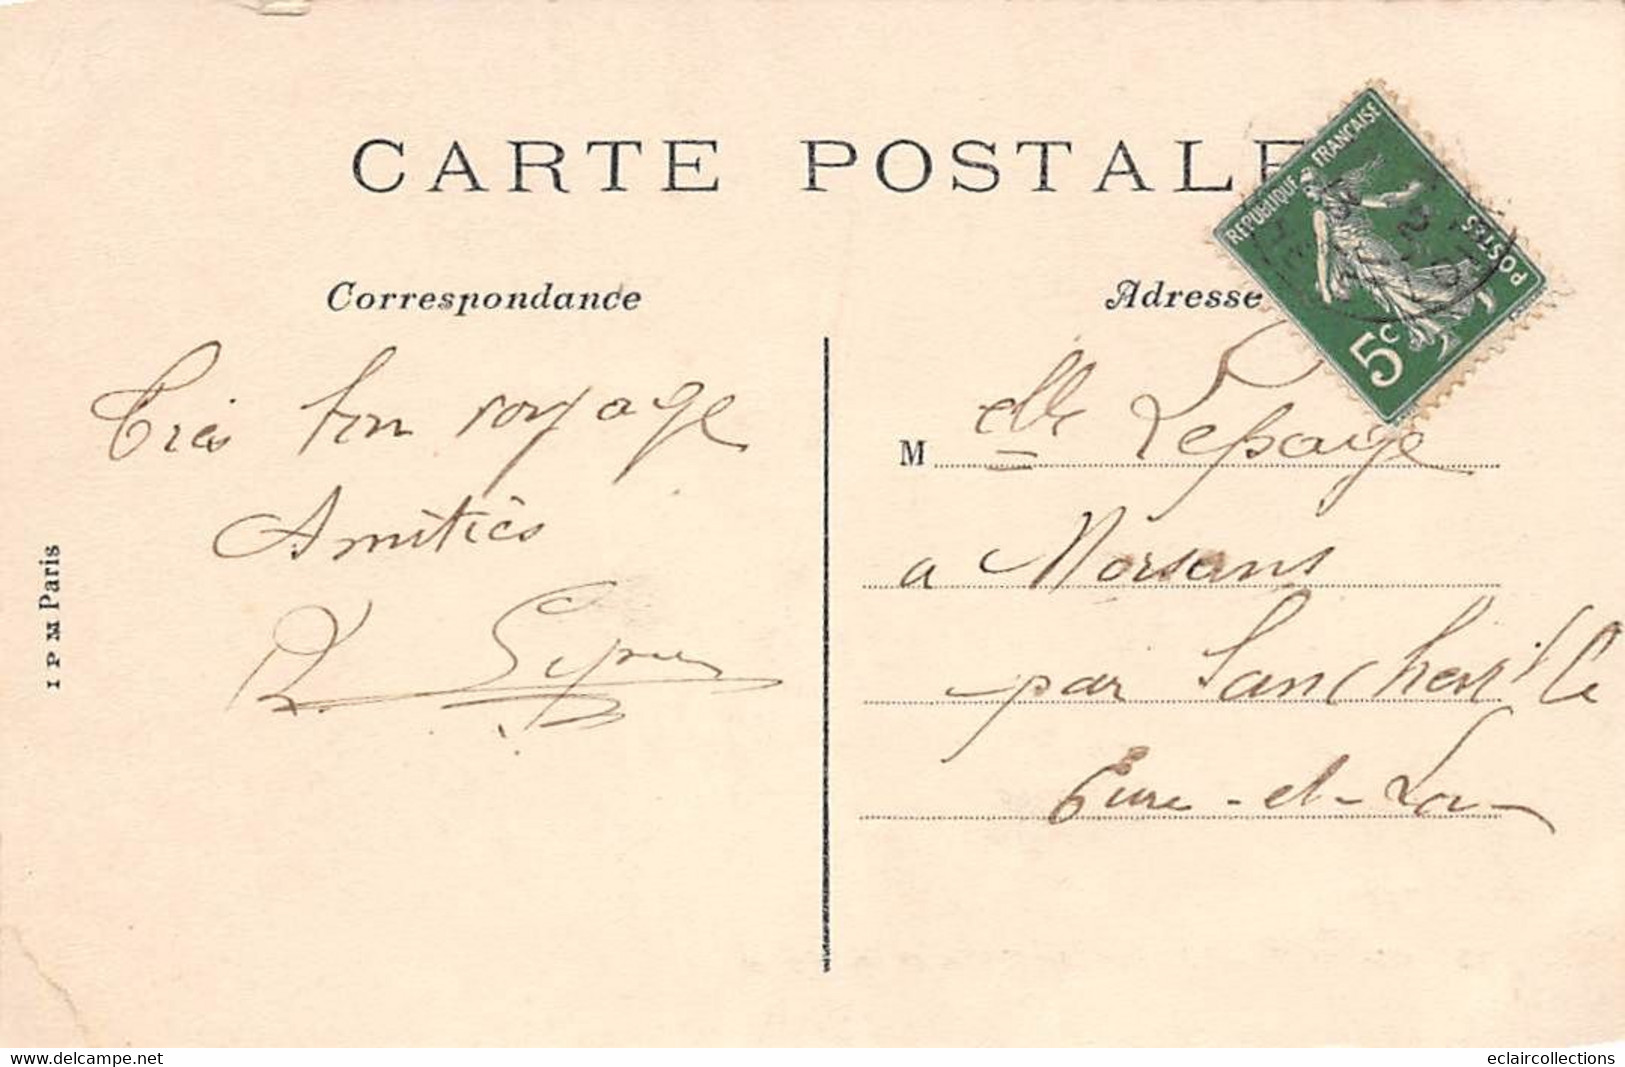 CARTE POSTALE
Correspondance
Adresse
REPUBLIQUE FRANCAISE
POSTES
5c
Très bon voyage
Amitiés
M elle Lepage
a Morsans
par Sancheville
Eure-et-Loir
I P M Paris
www.delcampe.net
eclaircollections